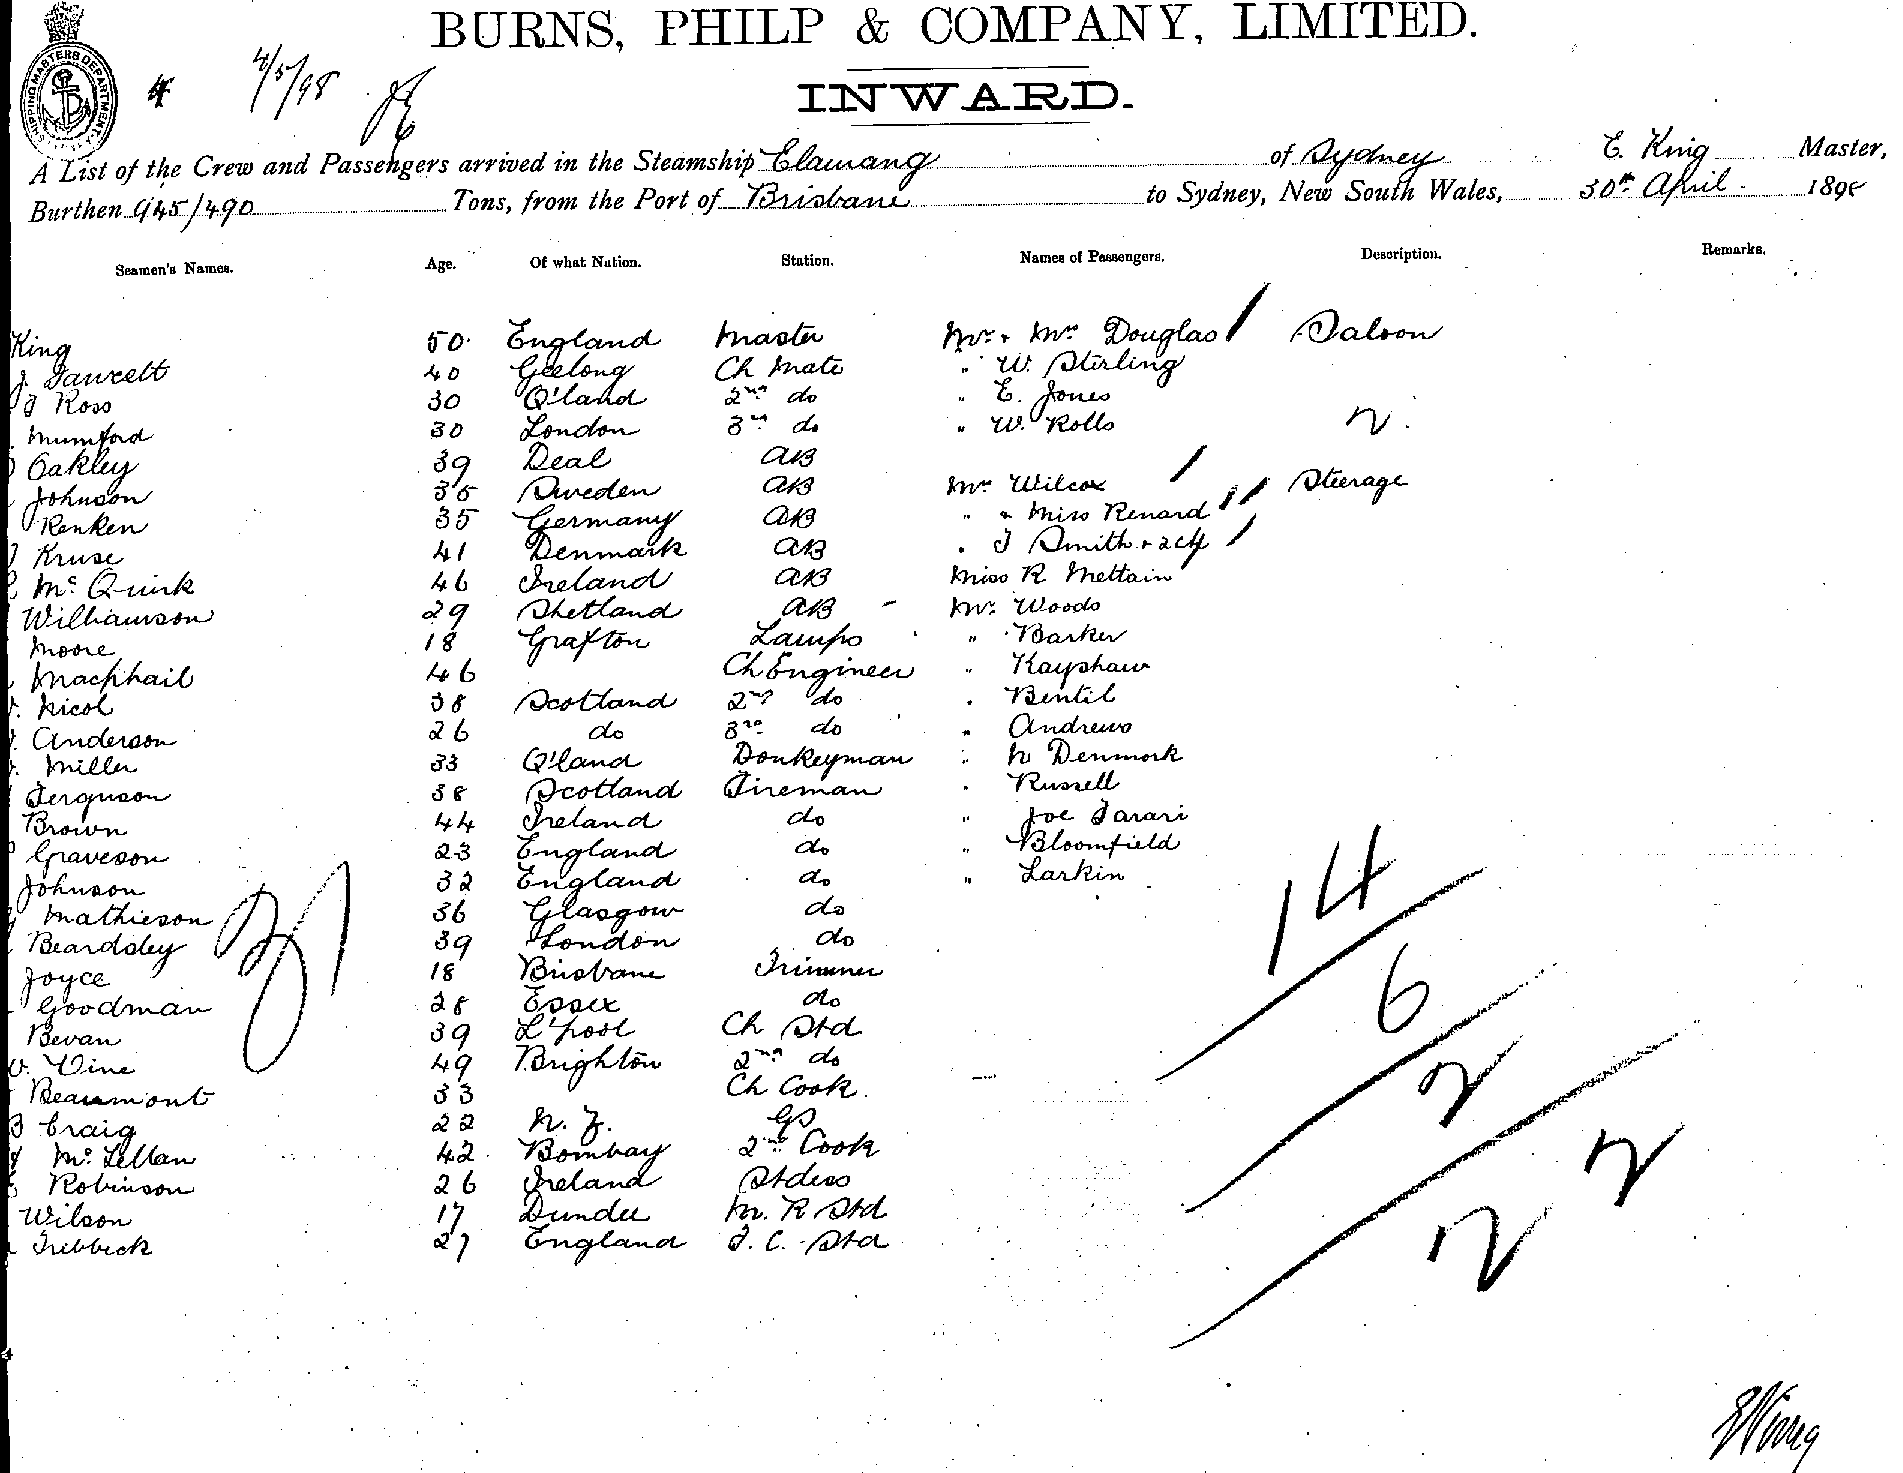 BURNS, PHILP & COMPANY, LIMITED.
INWARD.
SHIPPING MASTERS DEPARTMENT
4 4/5/98
A List of the Crew and Passengers arrived in the Steamship Elamang of Sydney E. King Master,
Burthen 945/490 Tons, from the Port of Brisbane to Sydney, New South Wales, 30th April 189
Seamen's Names. Age. Of what Nation. Station. Names of Passengers. Description. Remarks.
King 50 England Master Mr & Mrs Douglas Saloon
J. Fawcett 40 Geelong Ch Mate " W. Stirling
J Ross 30 Q'land 2nd do " E. Jones
Mumford 30 London 3rd do " W. Rolls 2
Oakley 39 Deal AB
Johnson 35 Sweden AB Mrs Wilcox Steerage
Renken 35 Germany AB " & Miss Renard
Kruse 41 Denmark AB " J Smith & 2 ch
McQuirk 46 Ireland AB Miss R. Mettain
Williamson 29 Shetland AB - Mr. Woods
Moore 18 Grafton Lamps " Barker
Macphail 46 Ch Engineer " Kayshaw
Nicol 38 Scotland 2nd do " Bentil
Anderson 26 do 3rd do " Andrews
Miller 33 Q'land Donkeyman " N Denmark
Ferguson 38 Scotland Fireman " Russell
Brown 44 Ireland do " Joe Tarari
Graveson 23 England do " Bloomfield
Johnson 32 England do " Larkin
Mathieson 36 Glasgow do
Beardsley 39 London do
Joyce 18 Brisbane Trimmer
Goodman 28 Essex do
Bevan 39 L'pool Ch Std
V. Vine 49 Brighton 2nd do
Beaumont 33 Ch Cook.
B Craig 22 N. Z. GS
McLellan 42 Bombay 2nd Cook
Robinson 26 Ireland Stdess
Wilson 17 Dundee M. R Std
Tribbeck 27 England F. C. Std
31
14
6
2
2 2
E King